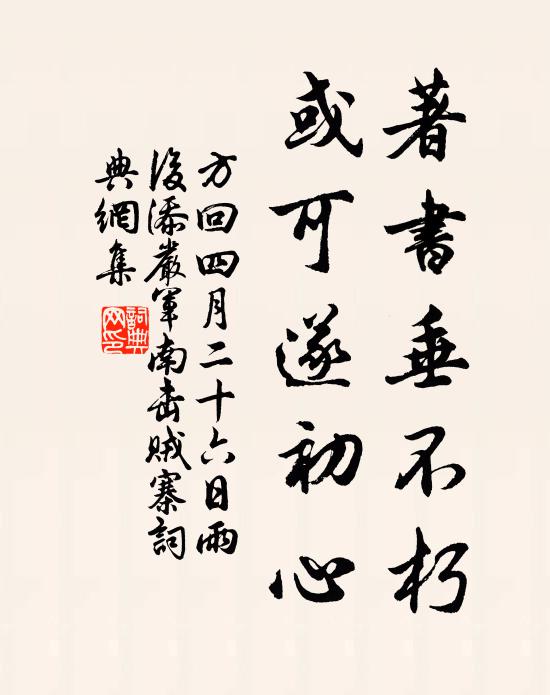 著書垂不朽
或可遂初心
方回四月二十六日雨
後添嚴軍南击賊寨詞
典網集
詞典
网印